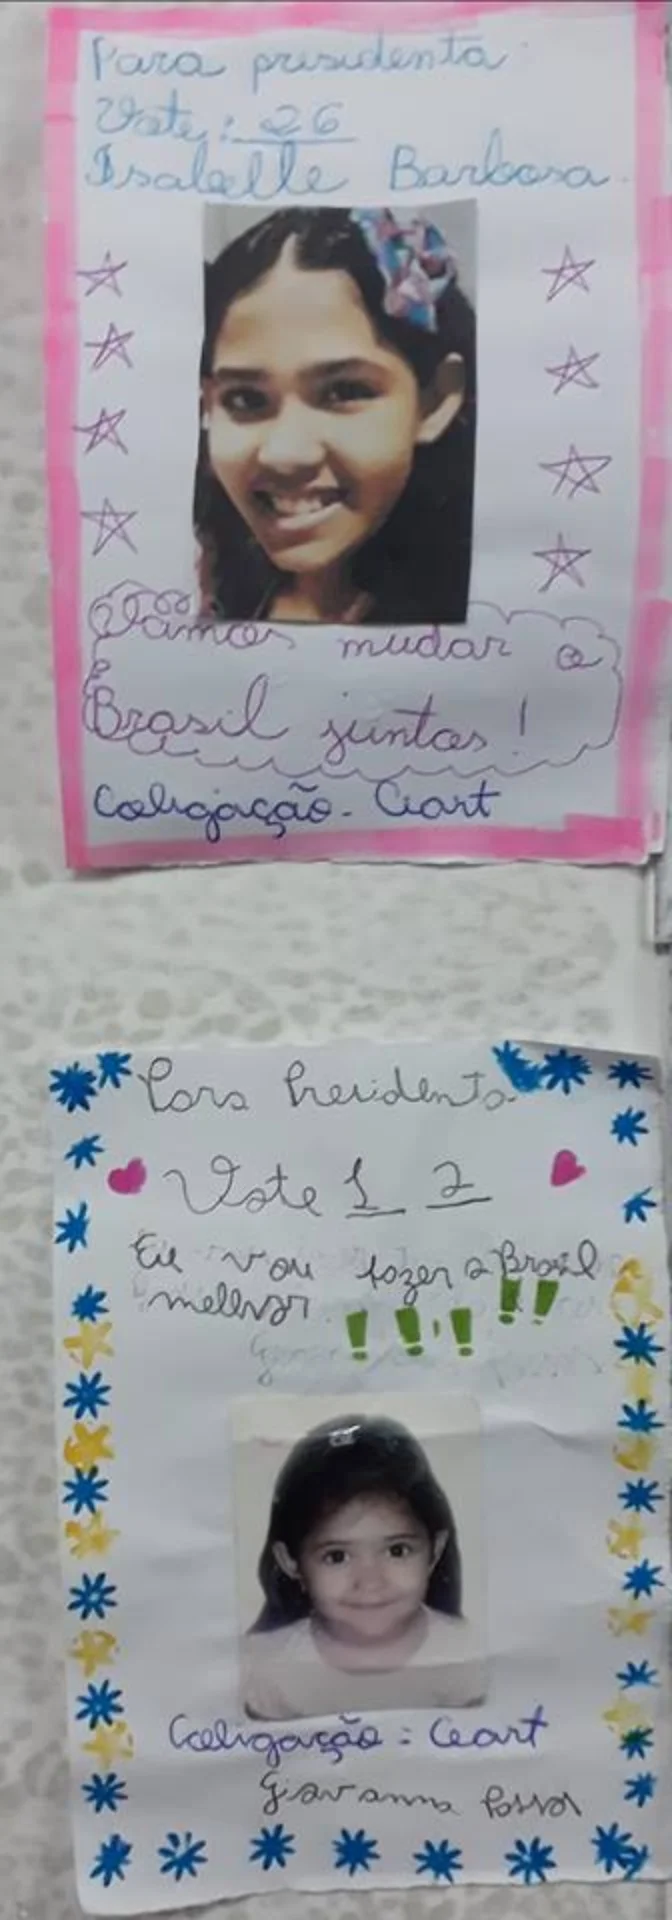 Para presidenta
Vote: 26
Isabelle Barbosa.
Vamos mudar o
Brasil juntos!
Coligação - Ceart
Para Presidenta
Vote 1 2
Eu vou fazer o Brasil
melhor !!!!!
Coligação : Ceart
Giovanna